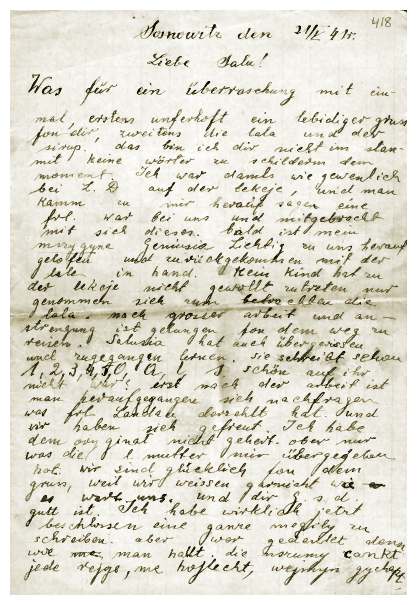 418
Sosnowitz den 21/I 41r.
Liebe Sala!
Was für ein überraschung mit ein-
mal, erstens unferhoft ein lebidiger gruss
fon dir, zweitens die lala und der
sirup, das bin ich dir nicht im stan-
mit keine wörter zu schildern dem
moment. Ich war damls wie gewenlich
bei L.D auf der lekcje, und man
kamm zu mir herauf sagen eine
frl. war bei uns und mitgebracht
mit sich dieses. bald ist mein
Geniusia Lieblig zu uns herauf
geloffen und zurückgekommen mit der
lala in hand. Kein Kind hat zu
der lekcje nicht gewollt zutreten nur
genommen sich zum betrachten die
lala. nach grosser arbeit und an-
strengung ist gelungen fon dem weg zu
reisen. Salusia hat auch übergerissen
und zugegangen lernen. sie schreibt schon
1, 2, 3, 4, 5, 0, a, i, s. schön auf ihr
nicht war? erst nach der arbeit ist
man heraufgegangen sich nachfragen
was frl Landau derzehlt hat. und
wir haben sich gefreut. Ich habe
dem orginal nicht gehert. ober nur
was die l. mutter mir übergegeben
hat. wir sind glücklich fon dem
gruss, weil wir weissen garnicht wie
es und dir G.s.d.
gutt ist. Ich habe wirklich jetzt
beschlossen eine ganze zu
schreiben. aber wer gedenkt
wie man halt. die
jede